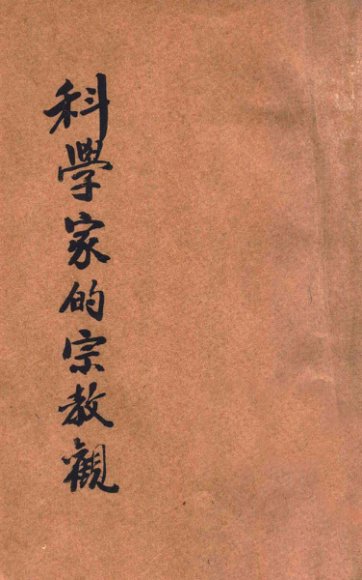 科學家的宗教觀